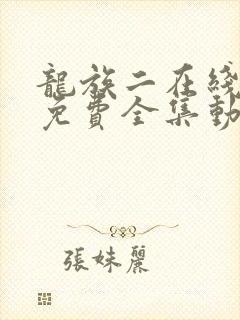 龍族二在綫
免費全集動
張妹麗